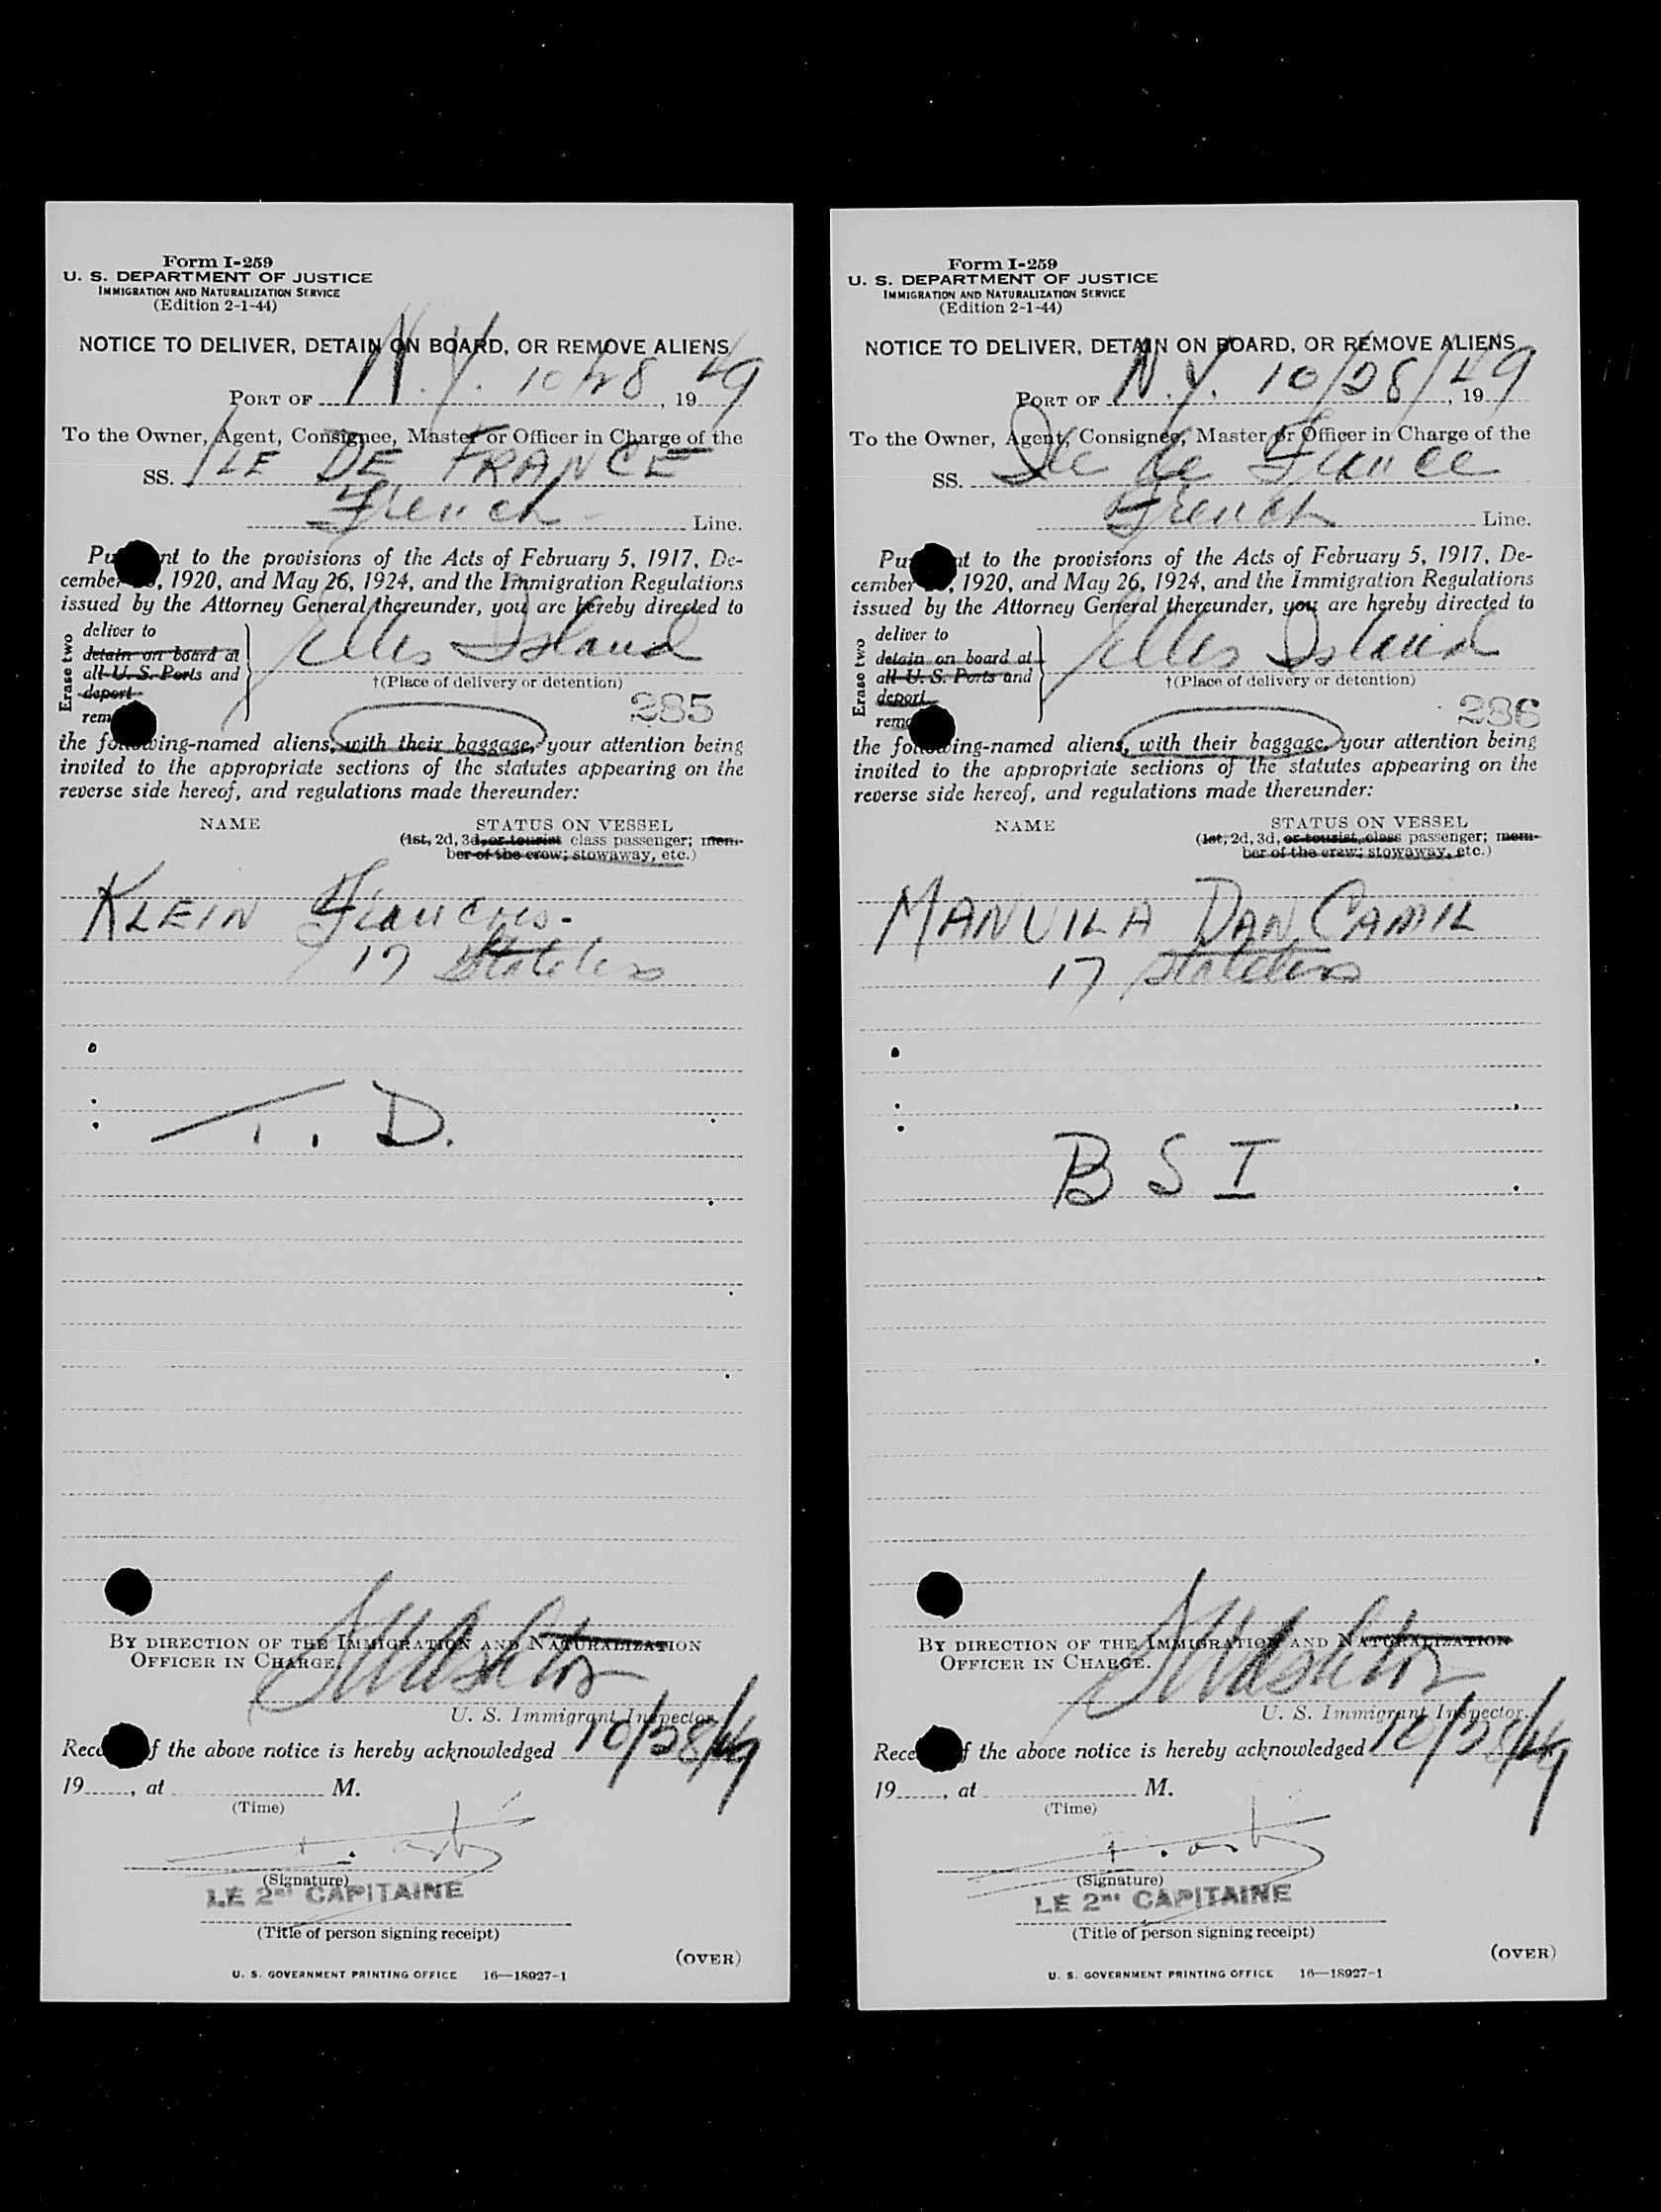 Form I-259
U. S. DEPARTMENT OF JUSTICE
IMMIGRATION AND NATURALIZATION SERVICE
(Edition 2-1-44)
NOTICE TO DELIVER, DETAIN ON BOARD, OR REMOVE ALIENS
PORT OF N.Y. 10/28, 1949
To the Owner, Agent, Consignee, Master or Officer in Charge of the
SS. ILE DE FRANCE
French Line.
Pu nt to the provisions of the Acts of February 5, 1917, De-
cember , 1920, and May 26, 1924, and the Immigration Regulations
issued by the Attorney General thereunder, you are hereby directed to
Erase two
deliver to
detain on board at
all U. S. Ports and
deport
rem
Ellis Island
†(Place of delivery or detention)
285
the following-named aliens, with their baggage, your attention being
invited to the appropriate sections of the statutes appearing on the
reverse side hereof, and regulations made thereunder:
NAME
STATUS ON VESSEL
(1st, 2d, 3d, or tourist class passenger; mem-
ber of the crew; stowaway, etc.)
KLEIN Francois.
17 Stateless
T. D.
BY DIRECTION OF THE IMMIGRATION AND NATURALIZATION
OFFICER IN CHARGE.
U. S. Immigrant Inspector.
Rece f the above notice is hereby acknowledged 10/28/49
19, at M.
(Time)
(Signature)
LE 2nd CAPITAINE
(Title of person signing receipt)
(OVER)
U. S. GOVERNMENT PRINTING OFFICE 16—18927-1
Form I-259
U. S. DEPARTMENT OF JUSTICE
IMMIGRATION AND NATURALIZATION SERVICE
(Edition 2-1-44)
NOTICE TO DELIVER, DETAIN ON BOARD, OR REMOVE ALIENS
PORT OF N.Y. 10/28/49, 19
To the Owner, Agent, Consignee, Master or Officer in Charge of the
SS. Ile de France
French Line.
Pu nt to the provisions of the Acts of February 5, 1917, De-
cember , 1920, and May 26, 1924, and the Immigration Regulations
issued by the Attorney General thereunder, you are hereby directed to
Erase two
deliver to
detain on board at
all U. S. Ports and
deport
remo
Ellis Island
†(Place of delivery or detention)
286
the following-named aliens, with their baggage, your attention being
invited to the appropriate sections of the statutes appearing on the
reverse side hereof, and regulations made thereunder:
NAME
STATUS ON VESSEL
(1st, 2d, 3d, or tourist, class passenger; mem-
ber of the crew; stowaway, etc.)
MANUILA DAN CAMIL
17 Stateless
B S I
BY DIRECTION OF THE IMMIGRATION AND NATURALIZATION
OFFICER IN CHARGE.
U. S. Immigrant Inspector.
Rece f the above notice is hereby acknowledged 10/28/49
19, at M.
(Time)
(Signature)
LE 2nd CAPITAINE
(Title of person signing receipt)
(OVER)
U. S. GOVERNMENT PRINTING OFFICE 16—18927-1